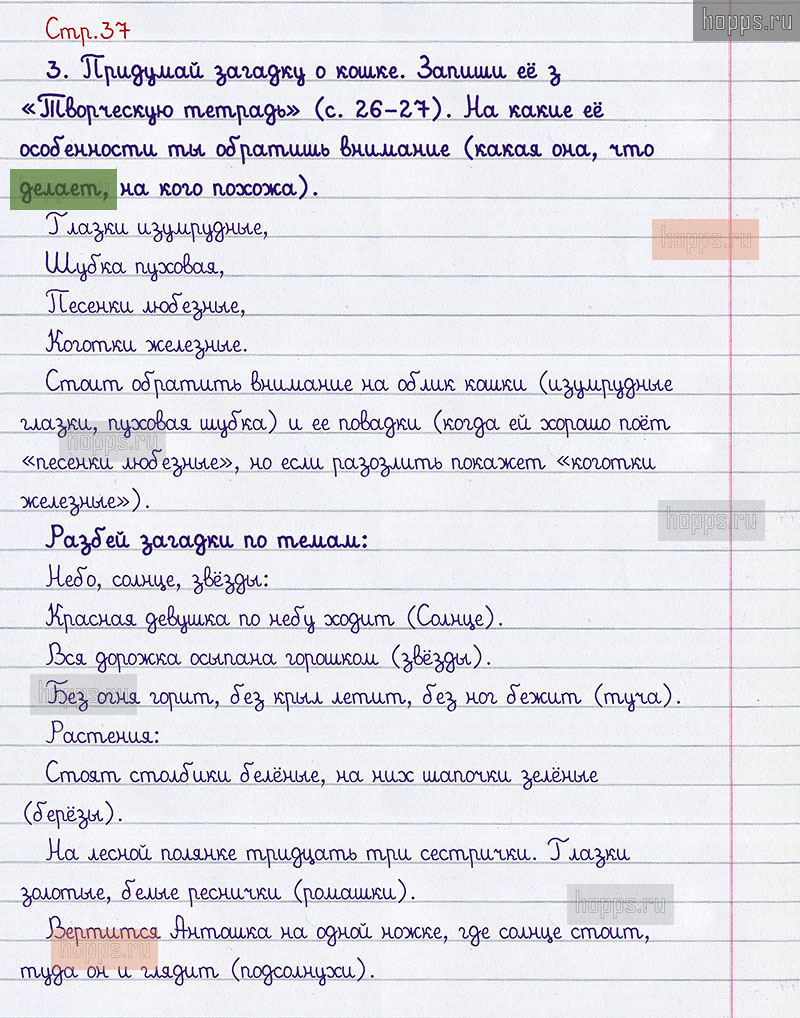 hopps.ru
Стр.37
3. Придумай загадку о кошке. Запиши её з
«Творческую тетрадь» (с. 26-27). На какие её
особенности ты обратишь внимание (какая она, что
делает, на кого похожа).
Глазки изумрудные,
hopps.ru
Шубка пуховая,
Песенки любезные,
Коготки железные.
Стоит обратить внимание на облик кошки (изумрудные
глазки, пуховая шубка) и ее повадки (когда ей хорошо поёт
hopps.ru
«песенки любезные», но если разозлить покажет «коготки
железные»).
hopps.ru
Разбей загадки по темам:
Небо, солнце, звёзды:
Красная девушка по небу ходит (Солнце).
Вся дорожка осыпана горошком (звёзды).
Без огня горит, без крыл летит, без ног бежит (туча).
hopps.ru
Растения:
Стоят столбики белёные, на них шапочки зелёные
(берёзы).
На лесной полянке тридцать три сестрички. Глазки
золотые, белые реснички (ромашки).
hopps.ru
Вертится Антошка на одной ножке, где солнце стоит,
hopps.ru
туда он и глядит (подсолнухи).